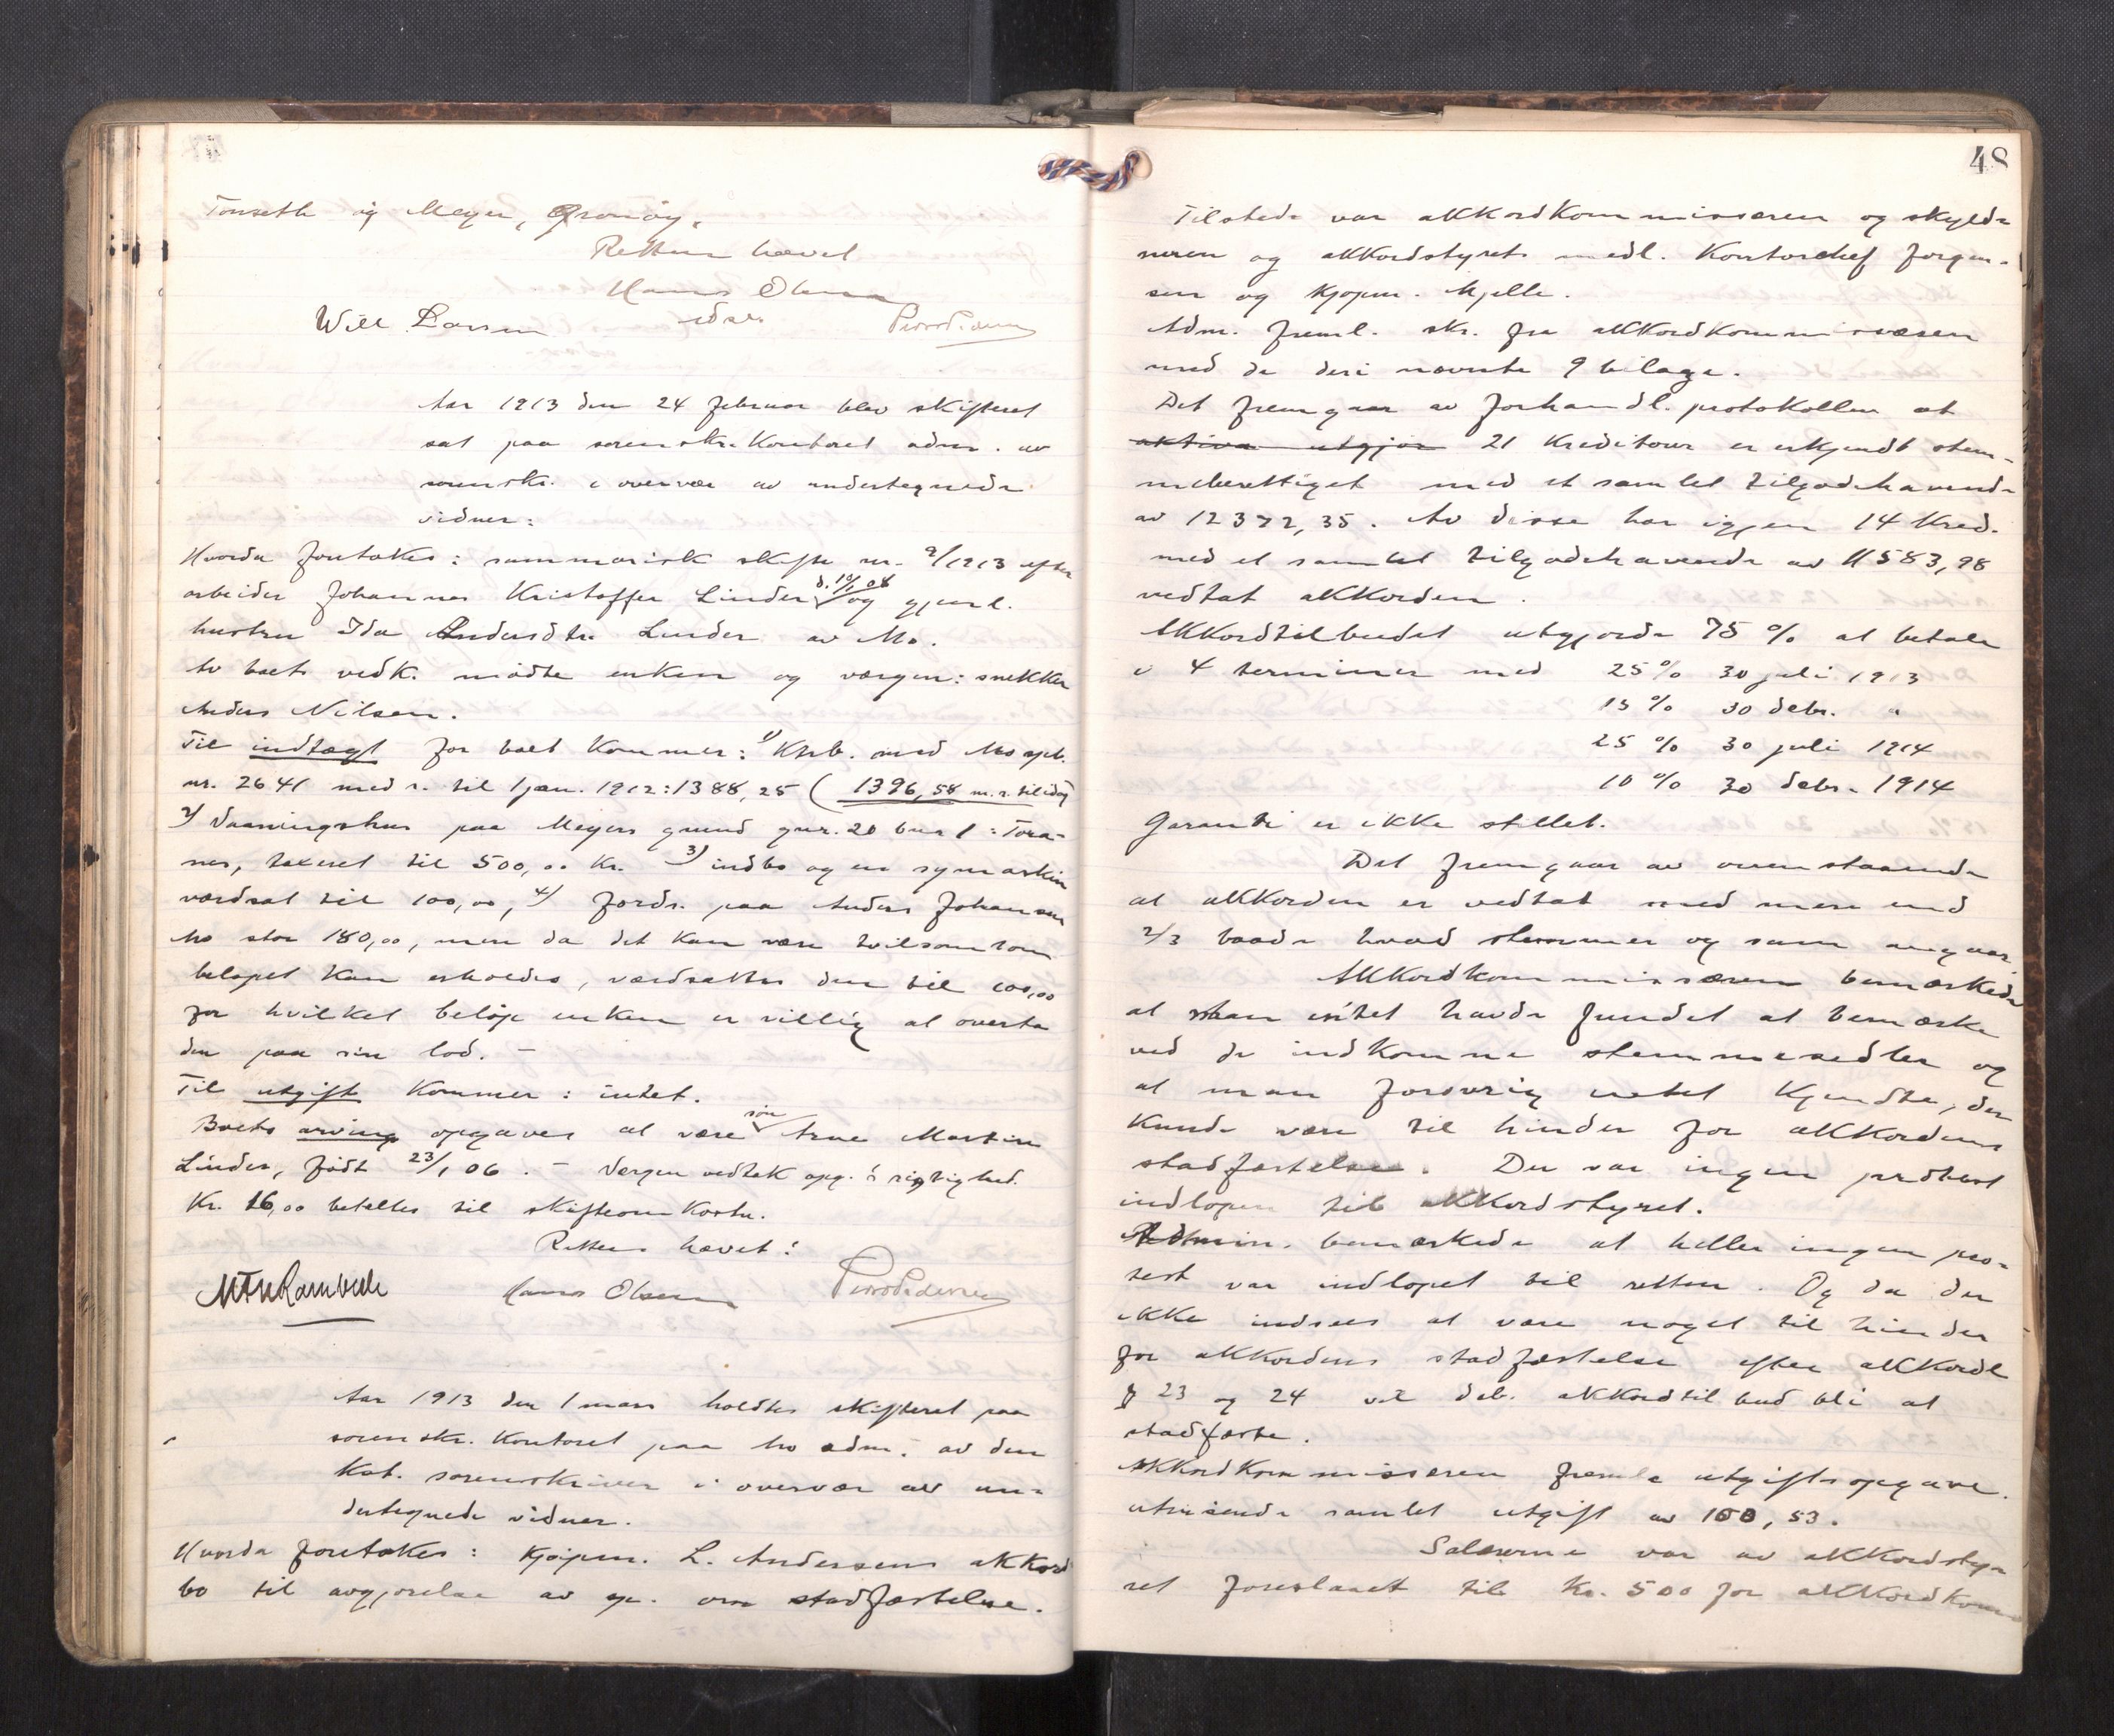 Tonseth og Meyer, Gronøy.
Retten hævet
Hans Olsen
Will Larsen
Aar 1913 den 24 februar blev skifteret
sat paa sorenskr.kontoret adm. av
sorenskr. i overvær av undertegnede
vidner:
Hvorda foretokes: summarisk skifte nr. 9/1913 efter
arbeider Johannes Kristoffer Linder d. 10/1 08 og gjenl.
hustru Ida Andersdtr Linder av Mo.
Av boets vedk. mødte enken og vergen: snekker
Anders Nilsen.
Til indtægt for boet kommer: 1) Kpb. med Mo spb.
nr. 2641 med r. til 1 jan. 1912: 1388,25 (1396,58 m. r. til idag
2) Vaaningshus paa Meyers grund gnr. 20 bnr 1: Tora-
nes, taxeret til 500,00 kr. 3) indbo og en symaskin
værdsat til 100,00, 4) fordr. paa Anders Johansen
Mo stor 180,00, men da det kan være tvilsom om
beløpet kan erholdes, værdsættes den til 100,00
for hvilket beløp enken er villig at overta
den paa sin lod. -
Til utgift kommer: intet.
Boets arving opgaves at være søn Arne Martin
Linder, født 23/1 06. - Vergen vedtok opg.s rigtighed.
Kr. 16,00 betaltes til skifteomkostn.
Retten hævet:
Hans Olsen
Aar 1913 den 1 mars holdtes skifteret paa
sorenskr. kontoret paa Mo adm. av den
kst. sorenskriver i overvær av un-
dertegnede vidner.
Hvorda foretokes: Kjøpm. L. Andersens akkord
bo til avgjørelse av sp. om stadfæstelse.
48
Tilstede var akkordkommissæren og skyld-
neren og akkordstyrets medl. Kontorchef Jørgen-
sen og Kjøpm. Mjelle.
Adm. freml. skr. fra akkordkommissæren
med de deri nævnte 9 bilage.
Det fremgaar av forhandl.protokollen at
aktiva utgjør 21 kreditorer er erkjendt stem-
meberettiget med et samlet tilgodehavende
av 12372,35. Av disse har igjen 14 kred.
med et samlet tilgodehavende av 11583,98
vedtat akkorden.
Akkordtilbudet utgjorde 75 % at betale
i 4 terminer med 25 % 30 juli 1913
15 % 30 debr. "
25 % 30 juli 1914
10 % 30 debr. 1914
Garanti er ikke stillet.
Det fremgaar av ovenstaaende
at akkorden er vedtat med mere end
2/3 baade hvad stemmer og sum angaar.
Akkordkommissæren bemærkede
at han intet havde fundet at bemærke
ved de indkomne stemmesedler og
at man forøvrig intet kjendte, der
kunde være til hinder for akkordens
stadfæstelse. Der var ingen protest
indløpen til akkordstyret.
Admin. bemærkede at heller ingen pro-
test var indløpet til retten. Og da der
ikke indsees at være noget til hinder
for akkordens stadfæstelse efter akkordl
§ 23 og 24 vil deb. akkordtilbud bli at
stadfæste.
Akkordkommissæren fremla utgiftsopgave
utvisende samlet utgift av 100,53.
Salærerne var av akkordsty-
ret foreslaaet til kr. 500 for akkordkom-